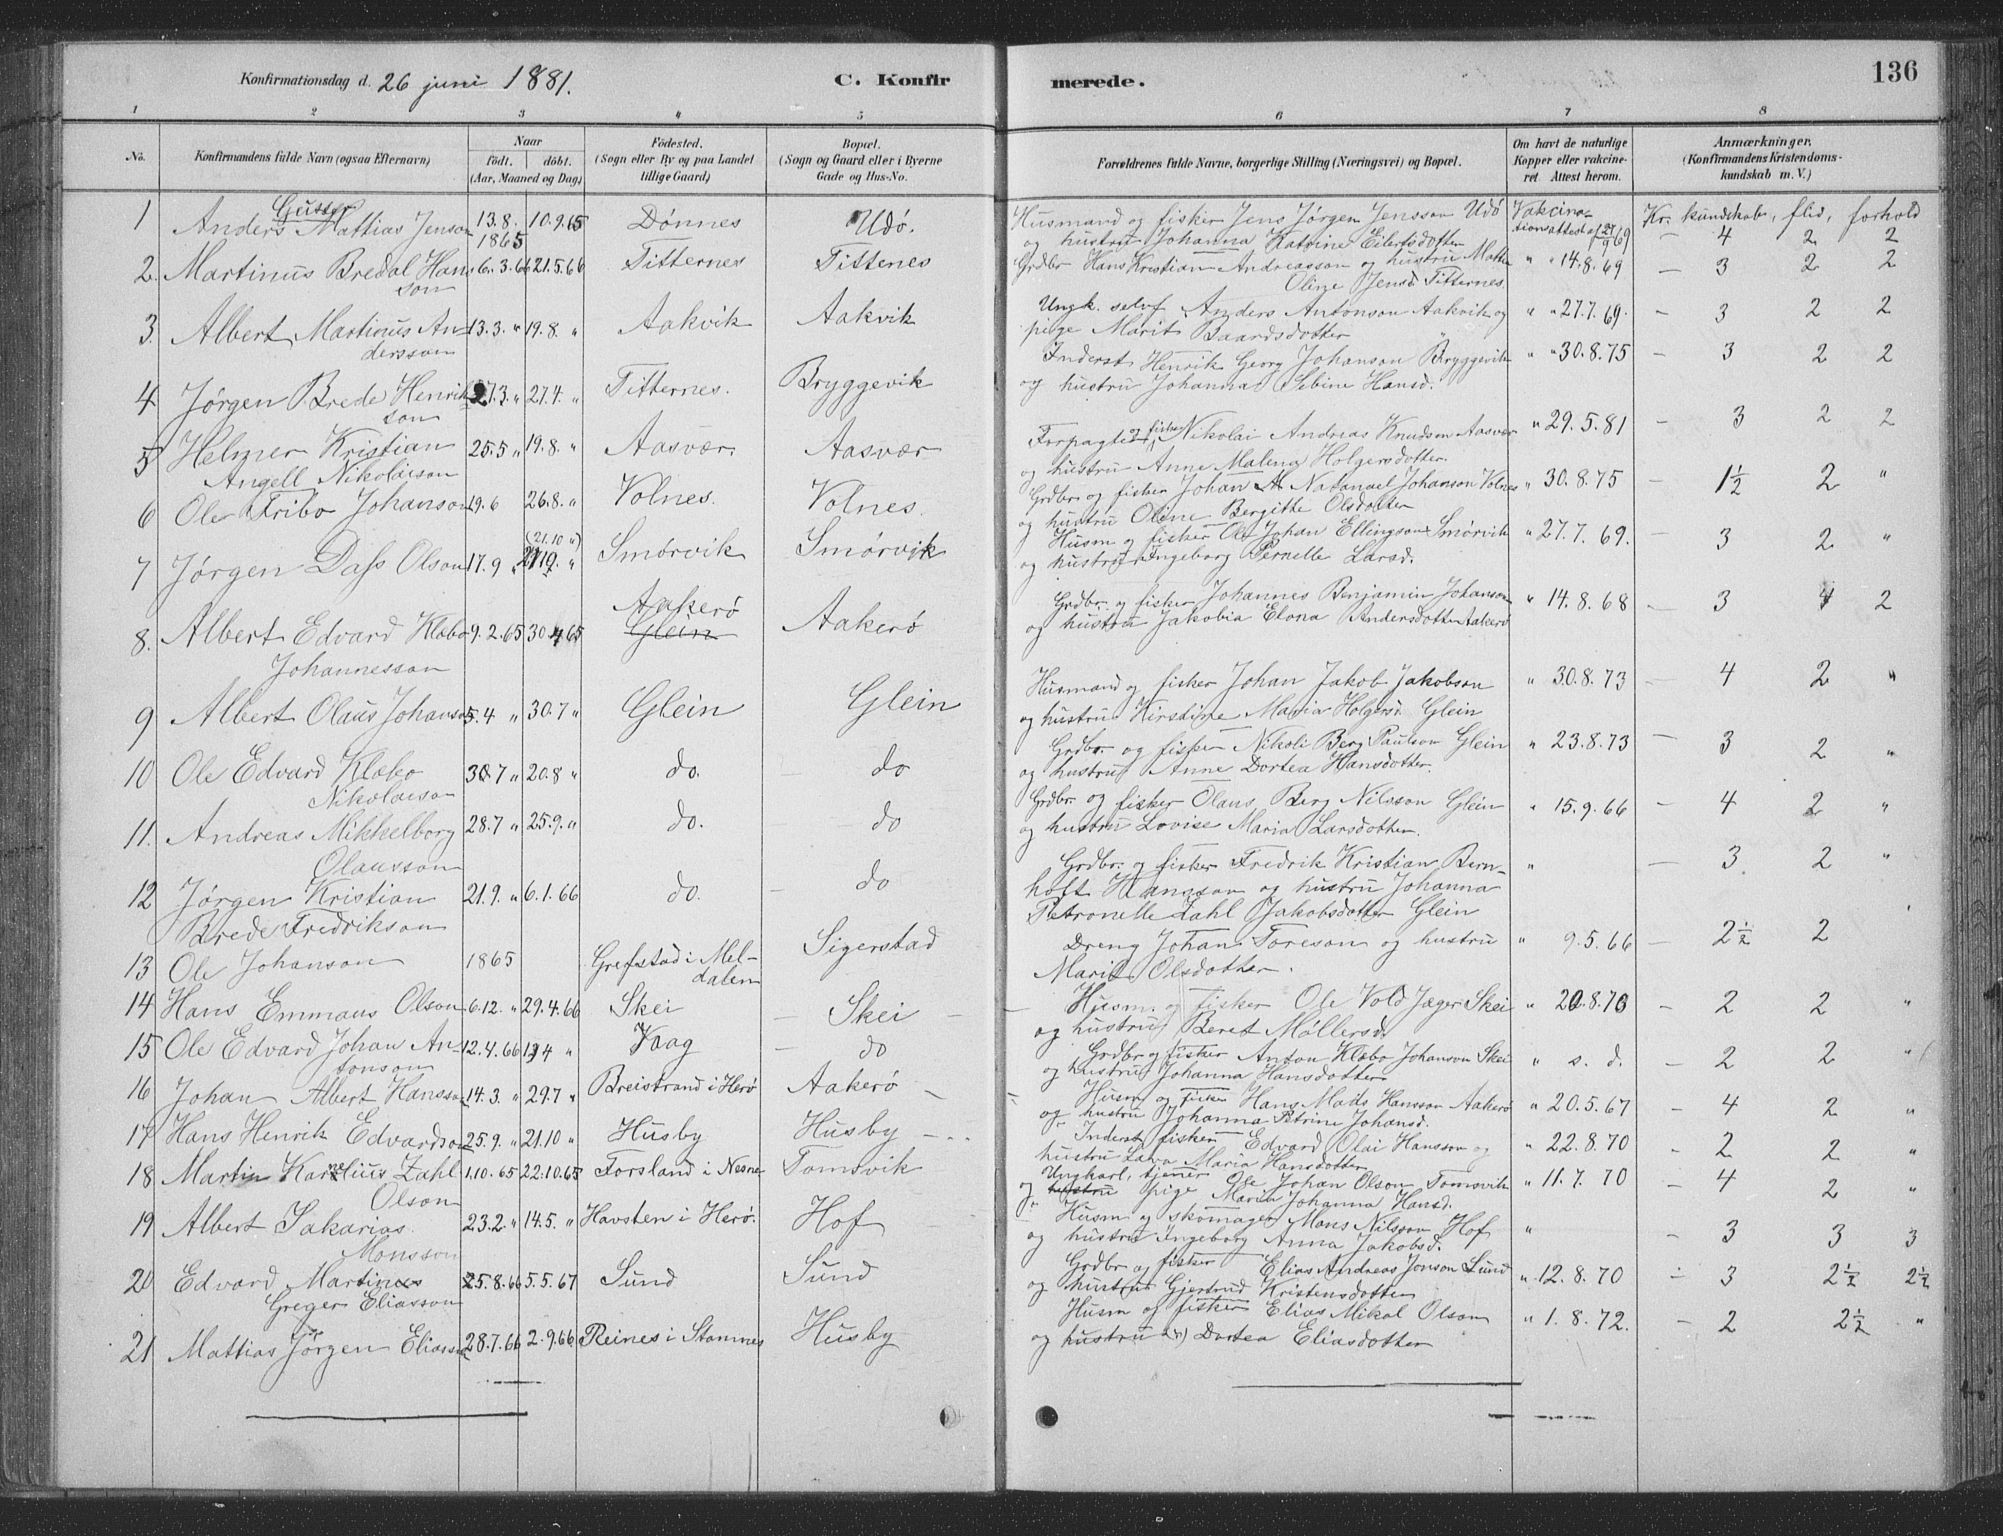 Konfirmationsdag d. 26 juni 1881. C. Konfir
1 2 3 4 5
No. Konfirmandens fulde Navn (ogsaa Efternavn) Naar født. døbt. (Aar, Maaned og Dag) Fødested. (Sogn eller By og paa Landet tillige Gaard) Bopæl. (Sogn og Gaard eller i Byerne Gade og Hus-No.
Gutter
1 Anders Mattias Jenson 13.8. 1865 10.9.65 Dønnes Udø.
2. Martinus Bredal Hansson 6.3.66 21.5.66 Titternes Tittenes
3. Albert Martinus Andersson 13.3. " 19.8. " Aakvik Aakvik
4 Jørgen Brede Henrikson 27.3. " 27.4. " Titternes. Bryggevik
5 Helmer Kristian Angell Nikolaison 25.5 " 19.8. " Aasvær. Aasvær
6 Ole Fribo Johanson 19.6 26.8. " Volnes. Volnes.
7 Jørgen Dass Olson 17.9 " (21.10 ") Smørvik Smørvik
8. Albert Edvard Klæbo Johannesson 9.2.65 30.4.65 Aakerø Glein Aakerø
9 Albert Olaus Johanson 5.4 " 30.7 " Glein Glein
10 Ole Edvard Klæbo Nikolaison 30.7 " 20.8 " do. do
11. Andreas Mikkelborg Olausson 28.7 " 25.9. " do. do
12 Jørgen Kristian Brede Fredrikson 21.9. " 6.1.66 do. – do
13 Ole Johanson 1865 Grefstad i Meldalen Sigerstad
14 Hans Emmaus Olson 6.12. " 29.4.66 Skei – Skei –
15 Ole Edvard Johan Antonson 12.4.66 " Vaag – do
16 Johan Albert Hansson 14.3. " 29.7 " Breistrand i Herø Aakerø –
17 Hans Henrik Edvardson 25.9. " 21.10 " Husby Husby –
18 Martin Karelius Zahl Olson 1.10.65 22.10.65 Forsland i Nesne Tomsvik
19 Albert Sakarias Monsson 23.2. " 14.5. " Havsten i Herø. Hof
20 Edvard Martinus Greger Eliasson 25.8.66 5.5.67 Sund Sund
21 Mattias Jørgen Eliasson 28.7.66 2.9.66 Reines i Stamnes Husby
merede. 136
6 7 8
Forældrenes fulde Navne, borgerlige Stilling (Næringsvei) og Bopæl. Om havt de naturlige Kopper eller vakcineret Attest herom. Anmærkninger. (Konfirmandens Kristendomskundskab m. V.)
Husmand og fisker Jens Jørgen Jensson Udø Vakcinationsattest af 27/9 69 Kr. kundskab, flid, forhold
og hustru Johanna Katrine Eilertsdotter – 4 2 2
Grdbr Hans Kristian Andreasson og hustru Matte " " 14.8.69 – 3 2 2
Oline Jensd Titternes.
Ungk. selvf Anders Antonson Aakvik og " " 27.7.69. – 3 2 2
pige Marit Baardsdotter
Inderst Henrik Georg Johanson Bryggevik " " 30.8.75 – 3 2 2
og hustru Johanna Sebine Hansd.
Forpagter og fisker Nikolai Andreas Knudsen Aasvær " 29.5.81 – 3 2 2
og hustru Anne Malena Holgersdotter.
Grdbr. og fisker Johan Natanael Johanson Volnes " 30.8.75 – 1½ 2 "
og hustru Oline Bergitte Olsdotter
Husm og fisker Ole Johan Ellingson Smørvik " 27.7.69. – 3 2 "
og hustru Ingeborg Pernelle Larsd.
Grdbr. og fisker Johannes Benjamin Johanson " 14.8.68 – 3 4 2
og hustru Jakobia Elona Andersdotter Aakerø
Husmand og fisker Johan Jakob Jakobson " 30.8.73 – 4 2 "
og hustru Kirstine Maria Holgersd Glein
Grdbr. og fisker Nikoli Berg Paulson Glein " 23.8.73 – 3 2 "
og hustru Anne Dortea Hansdotter.
Grdbr. og fisker Olaus Berg Nilsson Glein " 15.9.66 – 4 2 "
og hustru Lovise Maria Larsdotter.
Grdbr. og fisker Fredrik Kristian Bern- " – 3 2 "
hoft Hansson og hustru Johanna
Petronelle Zahl Jakobsdotter Glein
Dreng Johan Toreson og hustru " 9.5.66 – 2½ 2
Marit Olsdotter.
Husm. og fisker Ole Vold Jæger Skei " 20.8.70 – 2 2 "
og hustru Beret Møllersd.
Grdbr og fisker Anton Klæbo Johanson Skei " s. d. – 2 2 "
og hustru Johanna Hansdotter
Husm og fisker Hans Matts Hansson Aakerø " 20.5.67 – 4 2 "
og hustru Johanna Petrine Johansd.
Inderst fisker Edvard Olai Hansson og " 22.8.70 – 2 2 "
hustru Lava Maria Hansdotter
Ungkarl, tjener Ole Johan Olson Tomsvik " 11.7.70 – 4 2 "
og hustru pige Maria Johanna Hansd.
Husm og skomager Mons Nilsson Hof " – 3 3 3
og hustru Ingeborg Anna Jakobsd.
Grdbr og fisker Elias Andreas Jonson Sund " 12.8.70 – 3 2½ 2½
og hustru Gjertrud Kristensdotter
Husm og fisker Elias Mikal Olson " 1.8.72. – 2 2½ "
og hustru Dortea Eliasdotter